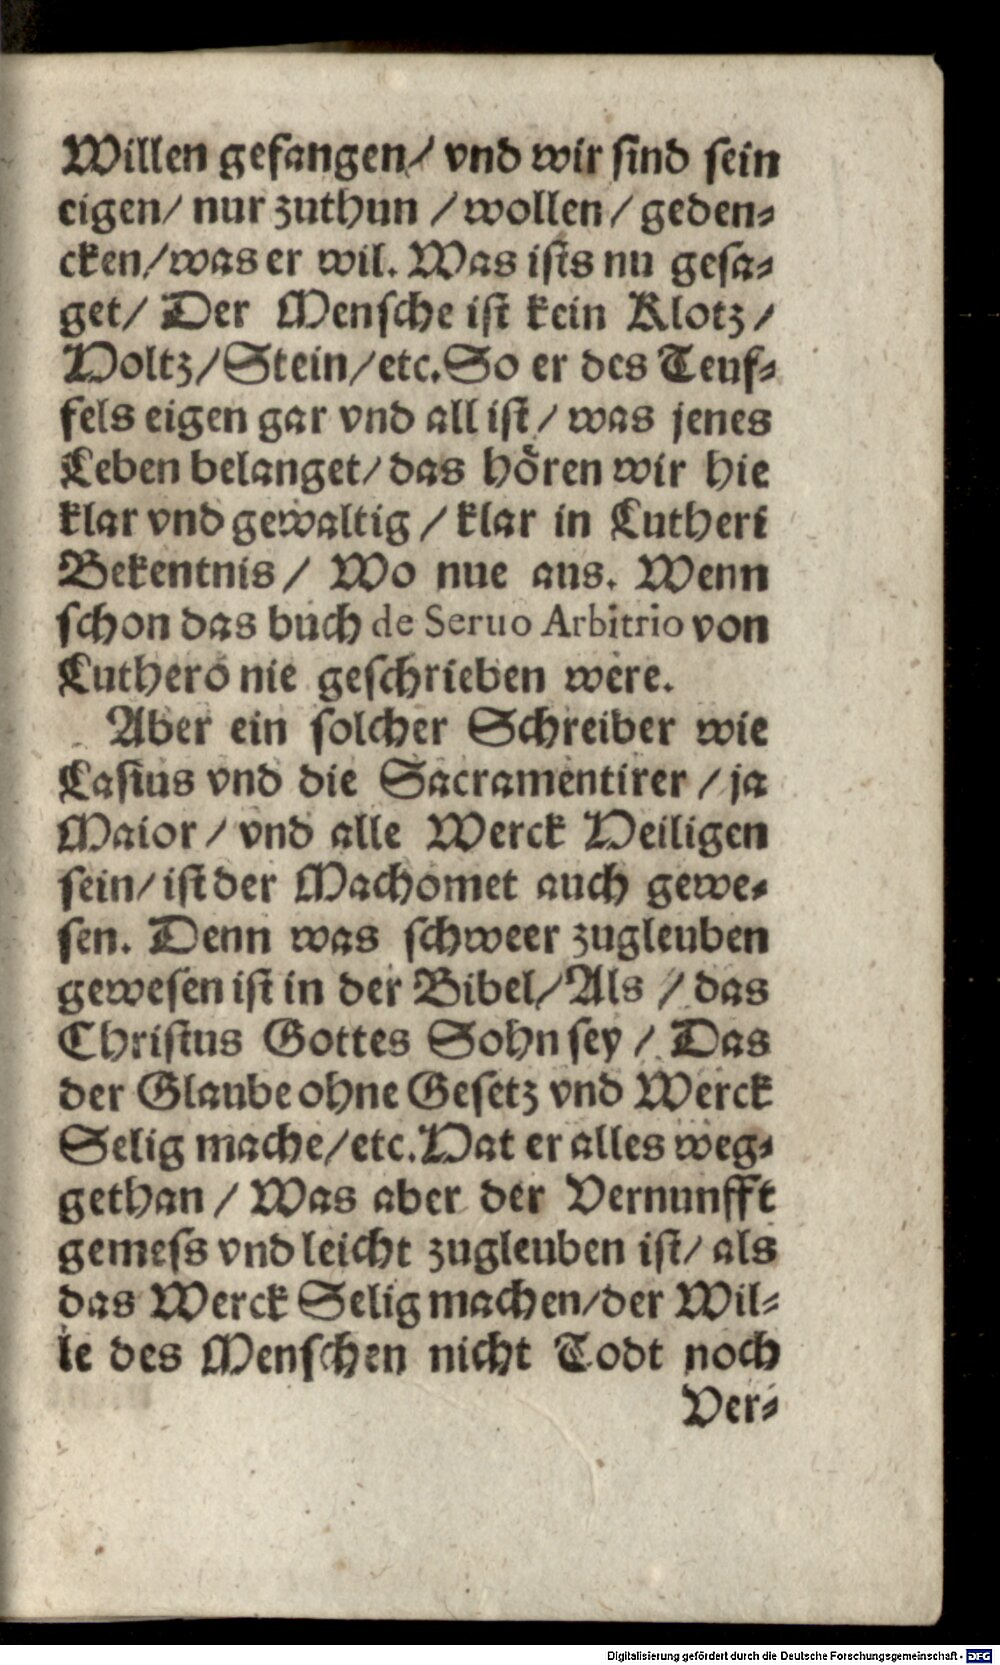 Willen gefangen/ vnd wir sind sein
eigen/ nur zuthun / wollen / geden-
cken/was er wil. Was ists nu gesa-
get/ Der Mensche ist kein Klotz /
Holtz/Stein/etc. So er des Teuf-
fels eigen gar vnd all ist / was jenes
Leben belanget/ das hören wir hie
klar vnd gewaltig / klar in Lutheri
Bekentnis / Wo nue aus. Wenn
schon das buch de Seruo Arbitrio von
Luthero nie geschrieben were.
Aber ein solcher Schreiber wie
Lasius vnd die Sacramentirer / ja
Maior / vnd alle Werck Heiligen
sein/ ist der Machomet auch gewe-
sen. Denn was schweer zugleuben
gewesen ist in der Bibel/Als / das
Christus Gottes Sohn sey / Das
der Glaube ohne Gesetz vnd Werck
Selig mache/etc. Hat er alles weg-
gethan / Was aber der Vernunfft
gemess vnd leicht zugleuben ist/ als
das Werck Selig machen/der Wil-
le des Menschen nicht Todt noch
Ver-
Digitalisierung gefördert durch die Deutsche Forschungsgemeinschaft - DFG